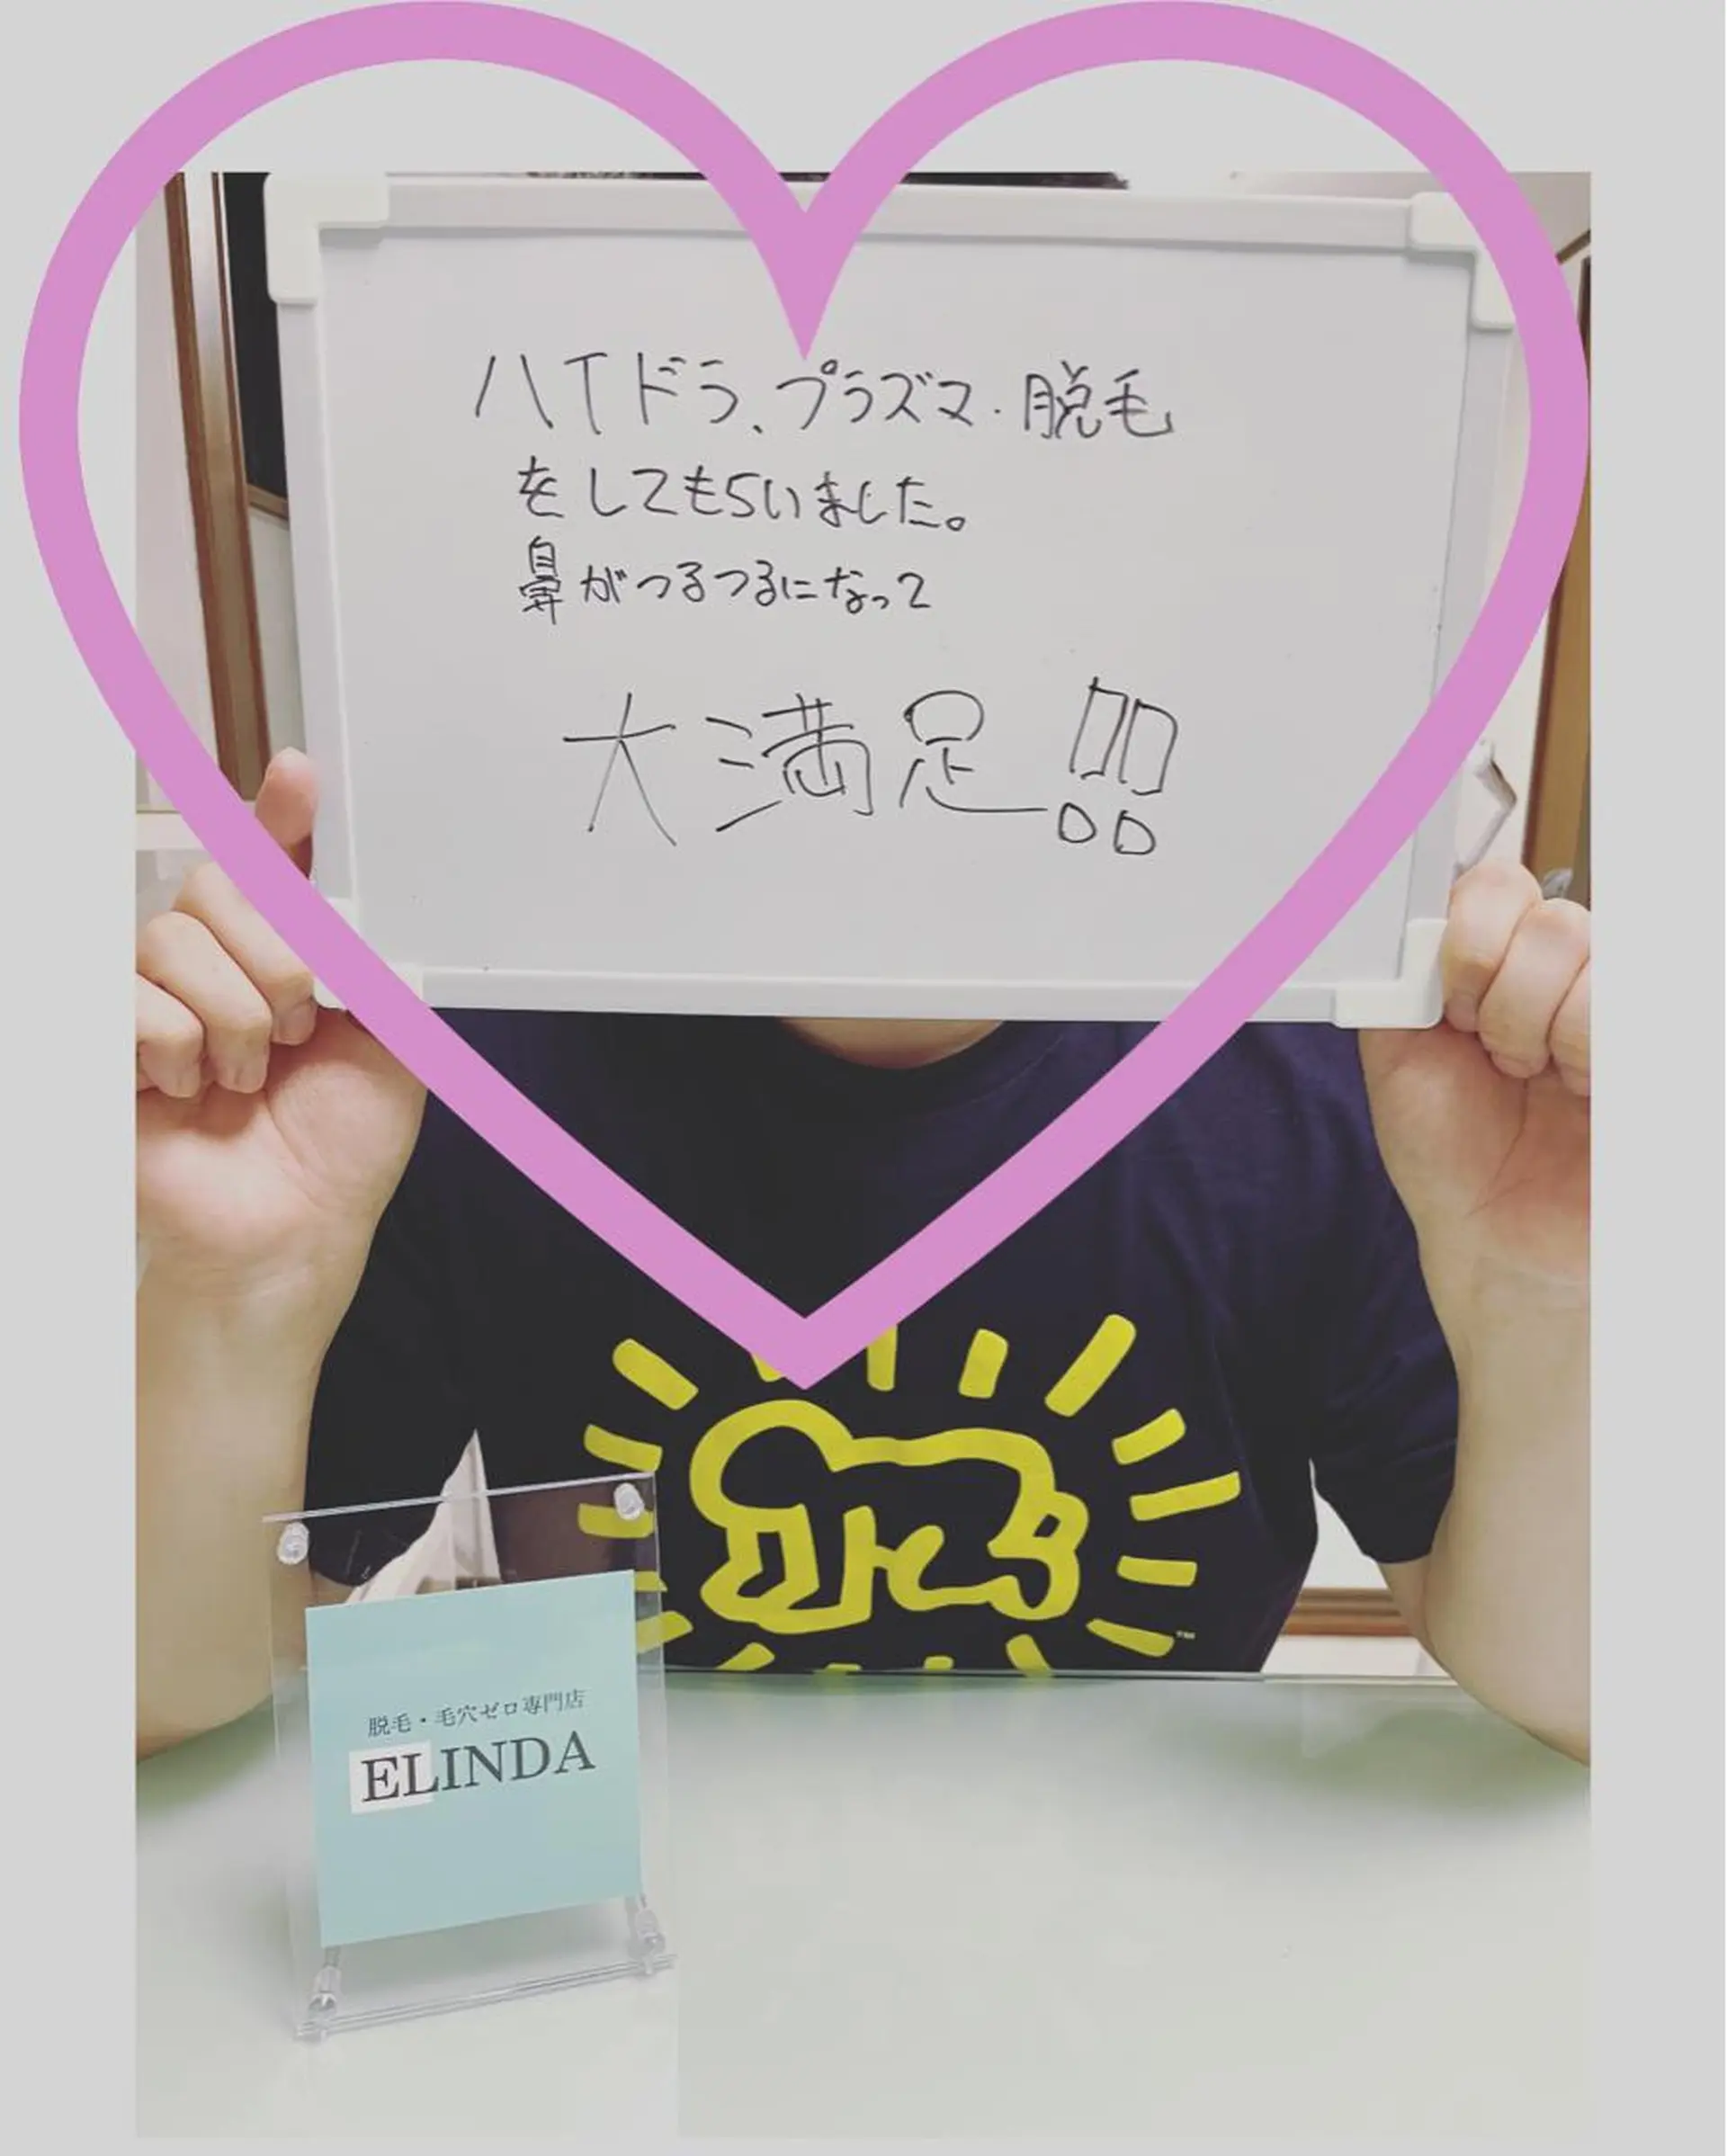 ハイドラ、プラズマ・脱毛
をしてもらいました。
鼻がつるつるになって
大満足!!
脱毛・毛穴ゼロ専門店
ELINDA
TM